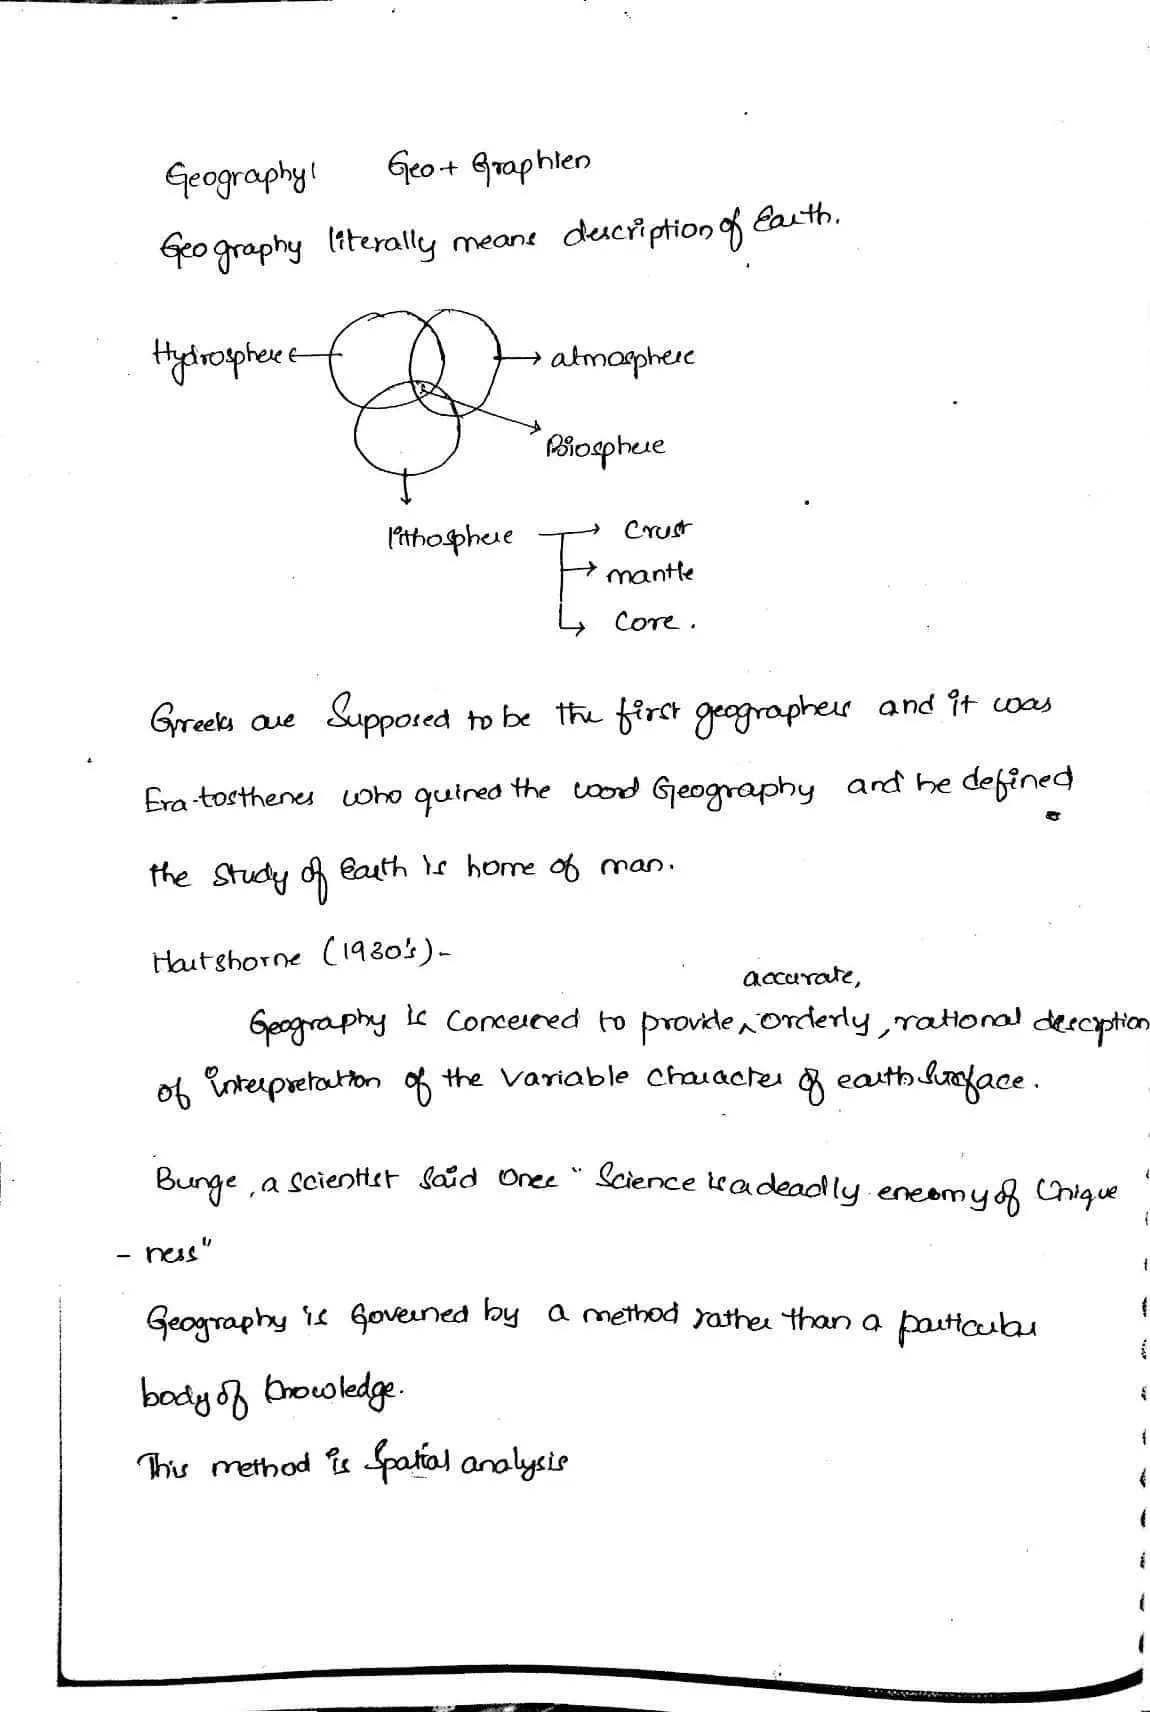 Geography: Geo + Graphien
Geography literally means description of Earth.
Hydrosphere
atmosphere
Biosphere
lithosphere
Crust
mantle
Core.
Greeks are Supposed to be the first geographers and it was
Era-tosthenes who quined the word Geography and he defined
the study of Earth is home of man.
Hartshorne (1930's)-
accurate,
Geography is concerned to provide ^ orderly, rational description
of interpretation of the variable character of earth surface.
Bunge, a scientist said once " Science is a deadly enemy of Unique
- ness"
Geography is Governed by a method rather than a particular
body of knowledge.
This method is Spatial analysis